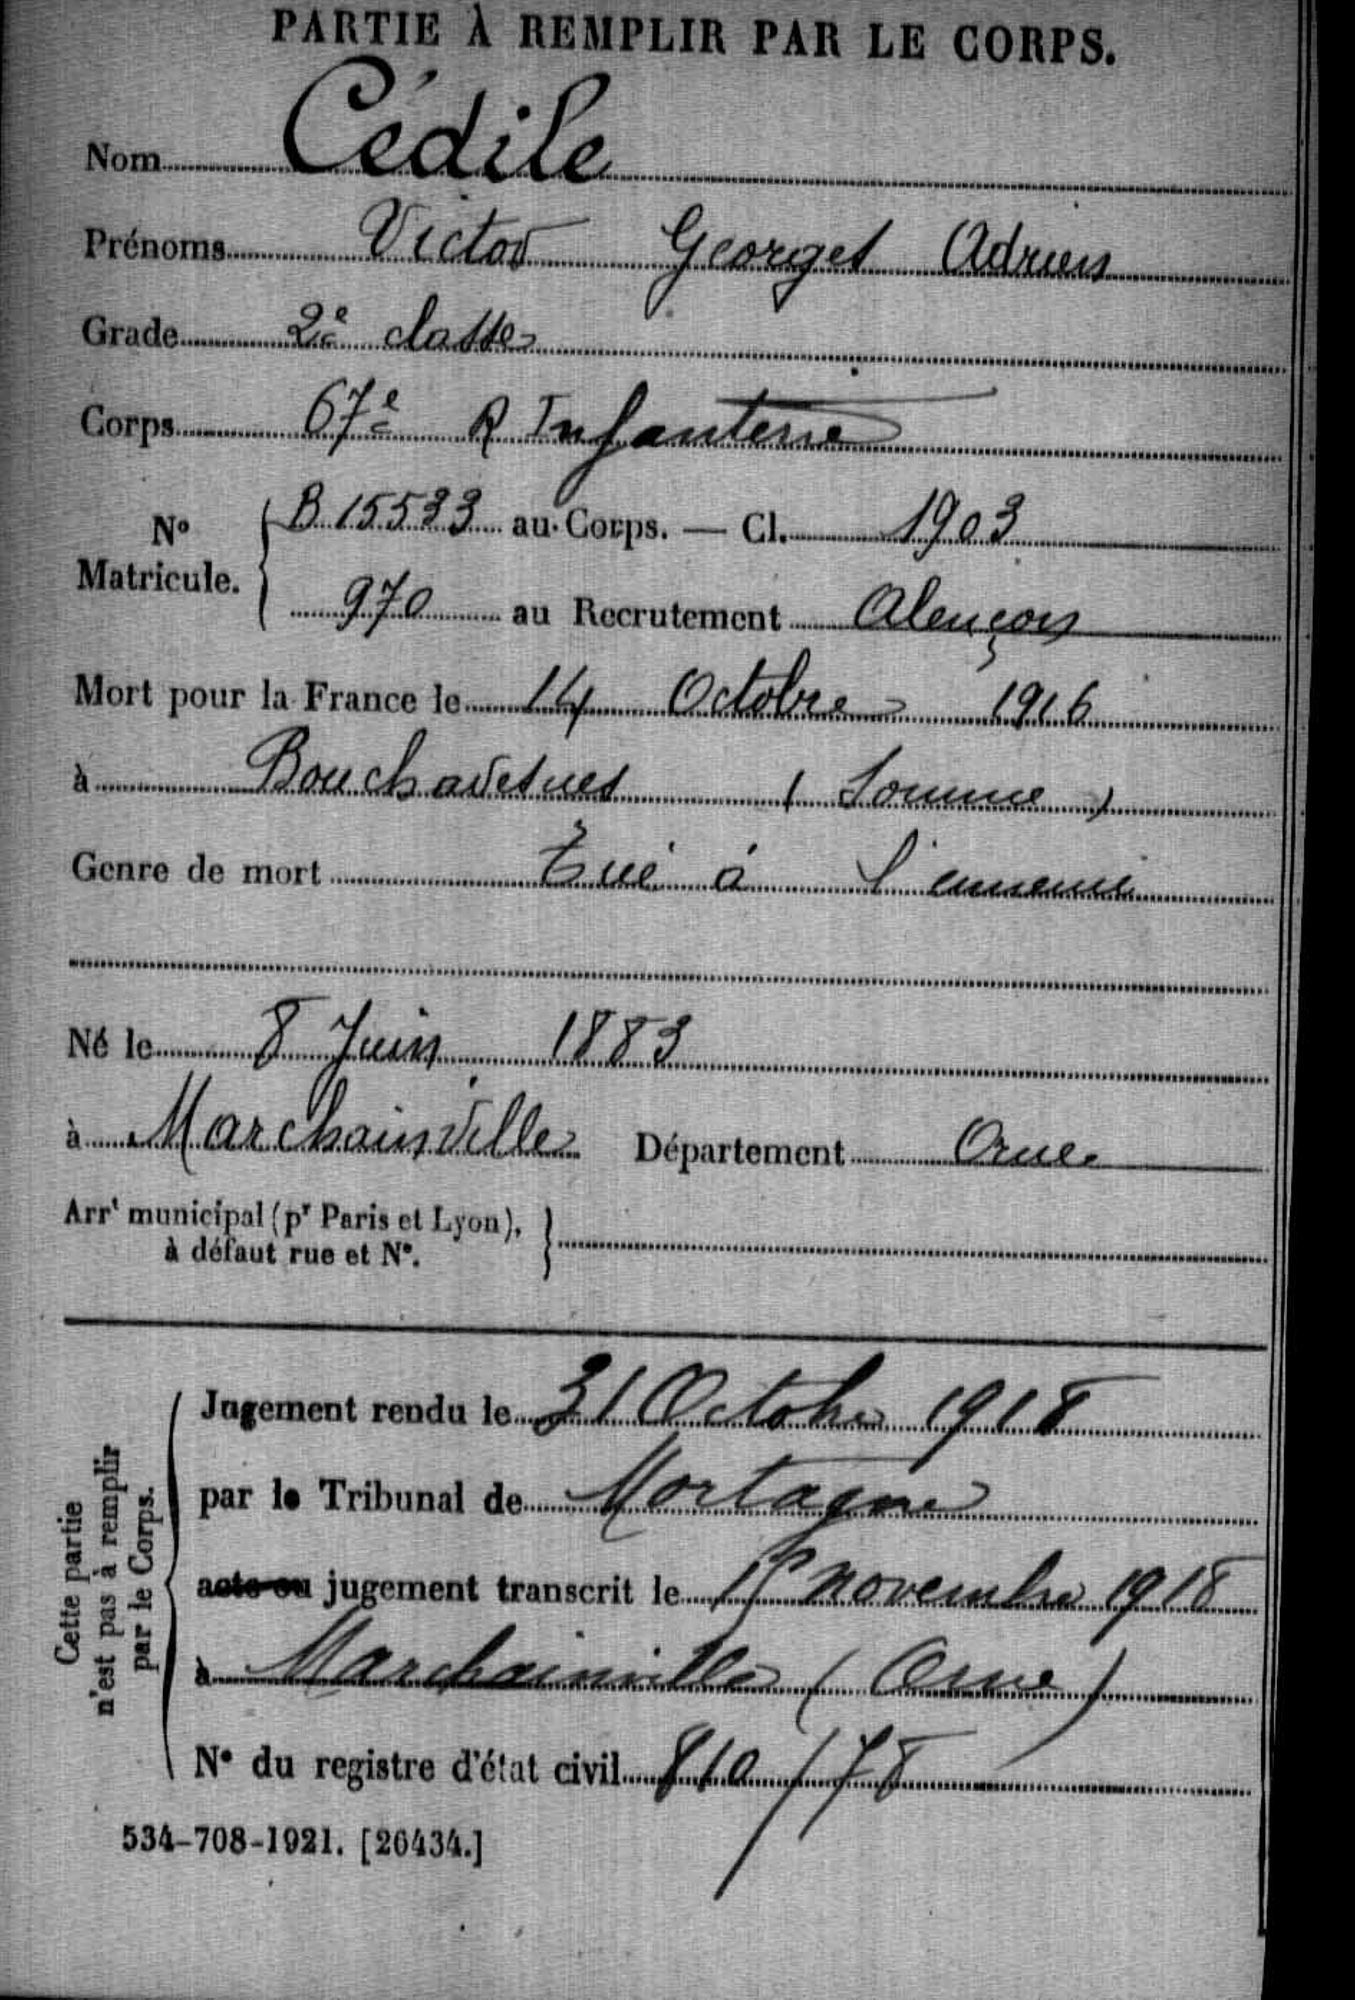 PARTIE À REMPLIR PAR LE CORPS.
Nom Cédile
Prénoms Victor Georges Adrien
Grade 2e classe
Corps 67e R Infanterie
No Matricule. B 15533 au Corps. — Cl. 1903
970 au Recrutement Alençon
Mort pour la France le 14 Octobre 1916
à Bouchavesnes (Somme)
Genre de mort Tué à l'ennemi
Né le 8 Juin 1883
à Marchainville Département Orne
Arrt municipal (pr Paris et Lyon),
à défaut rue et No.
Cette partie n'est pas à remplir par le Corps.
Jugement rendu le 31 Octobre 1918
par le Tribunal de Mortagne
acte ou jugement transcrit le novembre 1918
à Marchainville (Orne)
No du registre d'état civil 810/78
534-708-1921. [26434.]